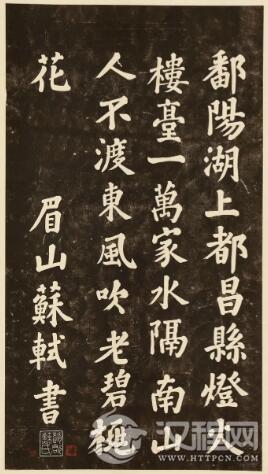 鄱陽湖上都昌縣燈火
樓臺一萬家水隔南山
人不渡東風吹老碧桃
花
眉山蘇軾書
汉程网
WWW.HTTPCN.COM